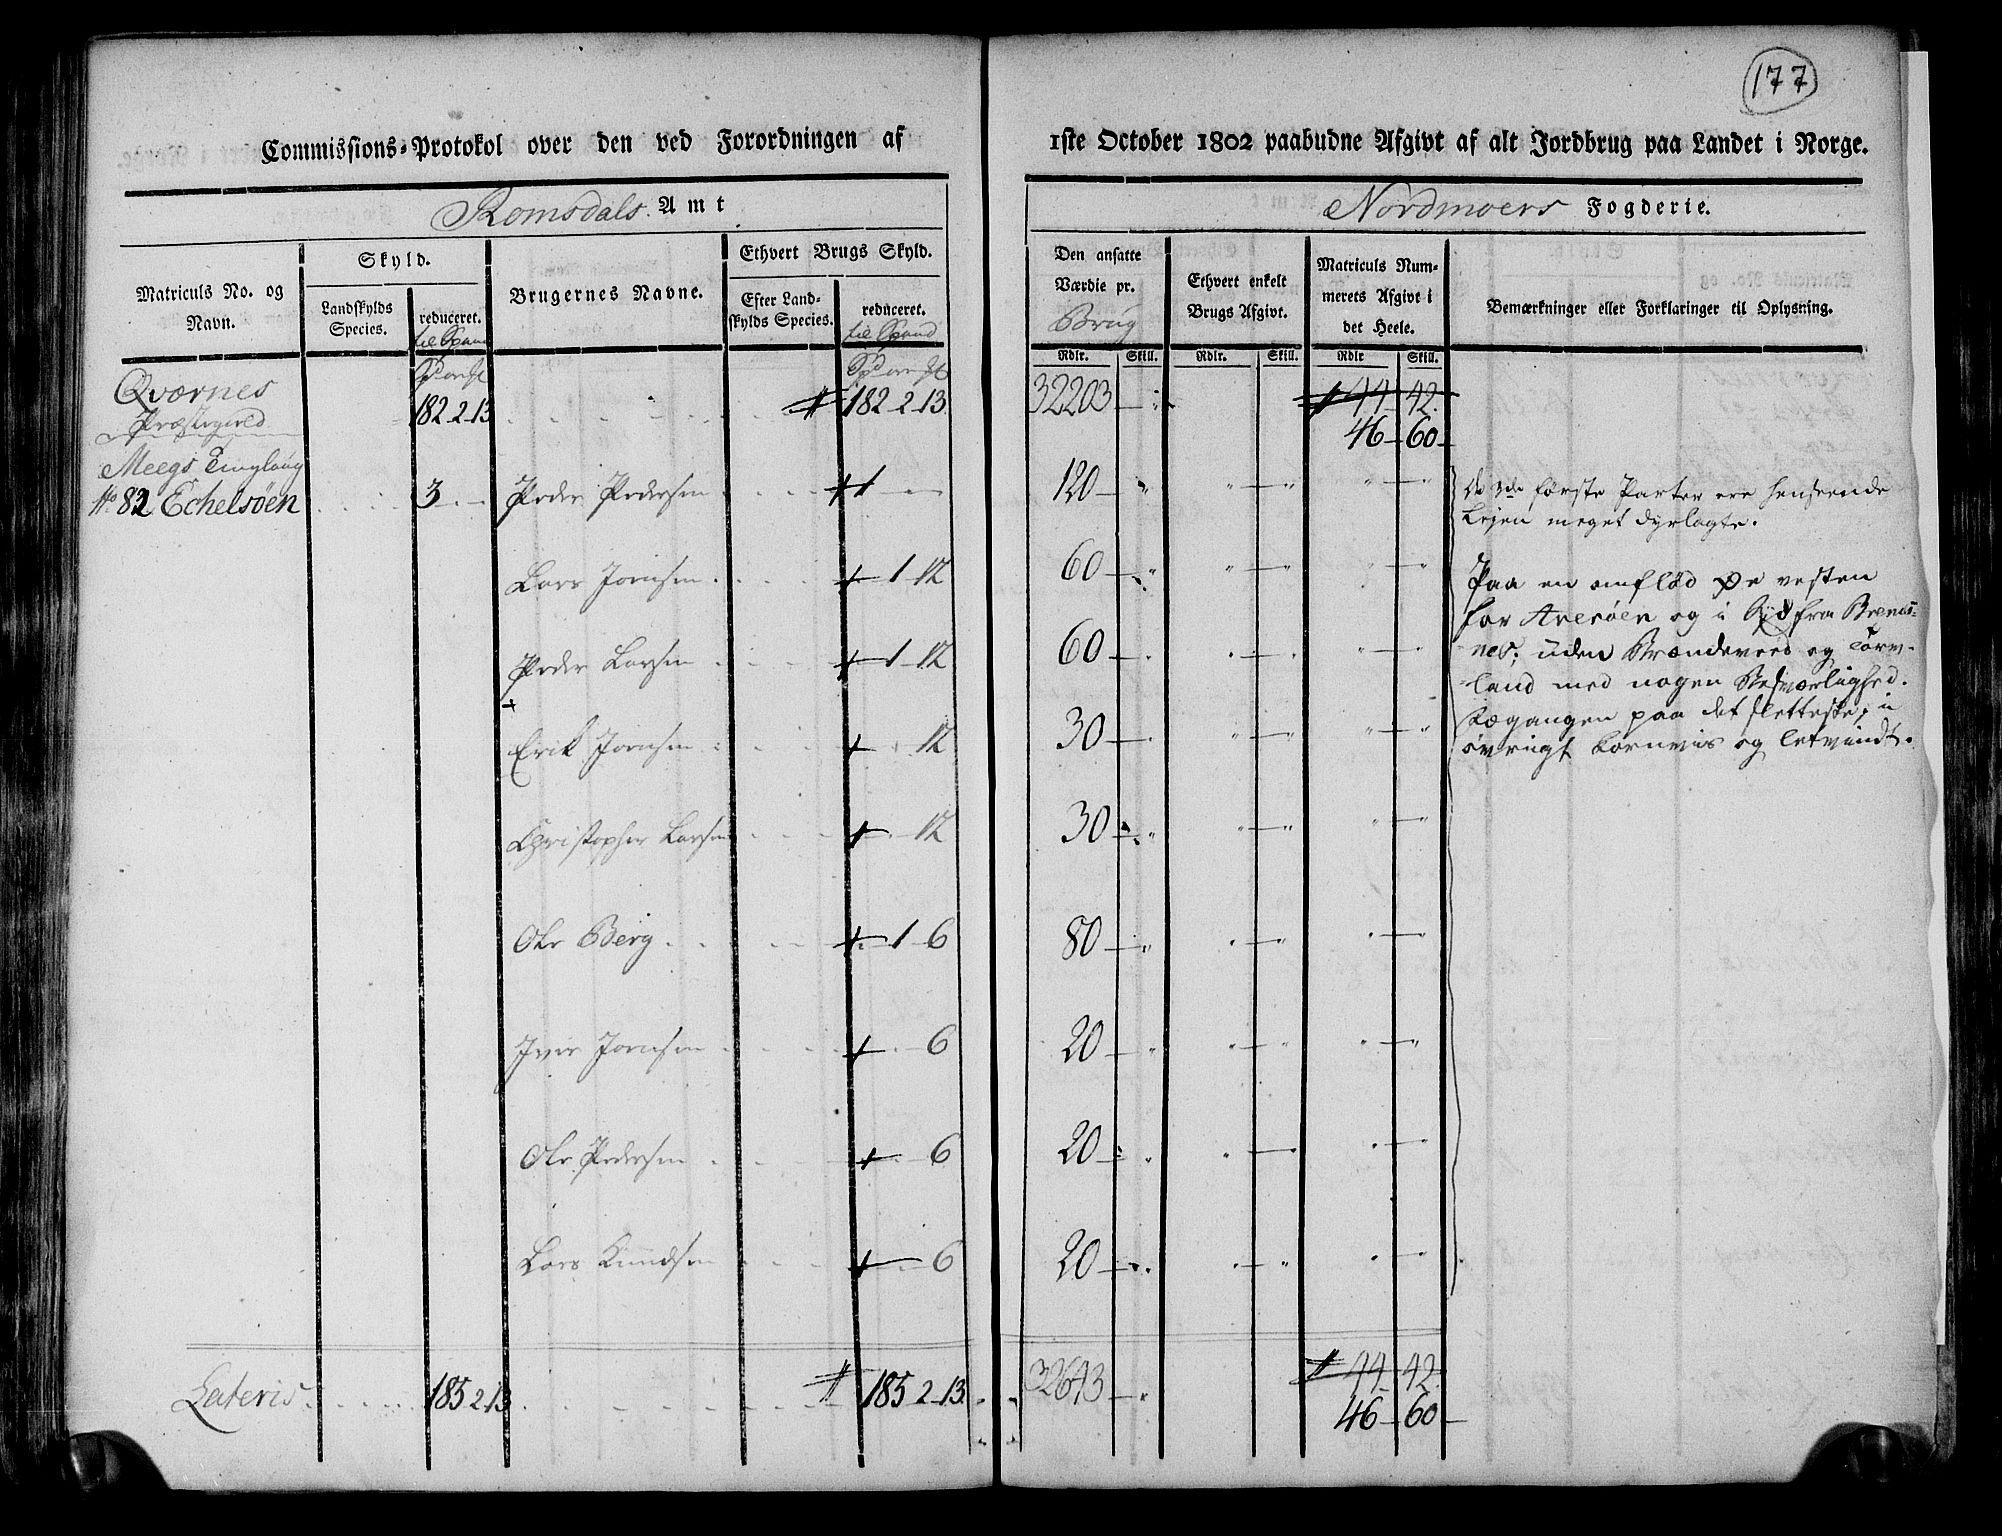 177
Commissions-Protokol over den ved Forordningen af 1ste October 1802 paabudne Afgivt af alt Jordbrug paa Landet i Norge.
Romsdals Amt
Nordmoers Fogderie.
Matriculs No. og Navn.
Skyld.
Landskylds Species.
reduceret.
til Spand
Brugernes Navne.
Ethvert Brugs Skyld.
Efter Landskylds Species.
reduceret.
til Spand
Den ansatte Værdie pr. Brug
Ethvert enkelt Brugs Afgivt.
Matriculs Nummerets Afgivt i det Heele.
Bemærkninger eller Forklaringer til Oplysning.
Rdlr. Skill. Rdlr. Skill. Rdlr Skill.
Qværnes
Præstegield 182 2 13 182 2 13 32203 44 42
46 60
Meegs Tinglaug
No 82 Echelsöen 3 Peder Pedersen 1 120
De 3de første Parter ere henseende
Leyen meget dyrlagte.
Lars Jonsen 1 12 60
Paa en omflöd Øe vesten
for Averöen og i Syd fra Bremsnes;
uden Brændeveed og Torvland
med nogen Besværlighed.
Søgangen paa det sletteste, i
øvrigt kornvis og letvindt.
Peder Larsen 1 12 60
Erik Jonsen 12 30
Christopher Larsen 12 30
Ole Berg 1 6 80
Iver Jonsen 6 20
Ole Pedersen 6 20
Lars Knudsen 6 20
Lateris 185 2 13 185 2 13 32643 44 42
46 60